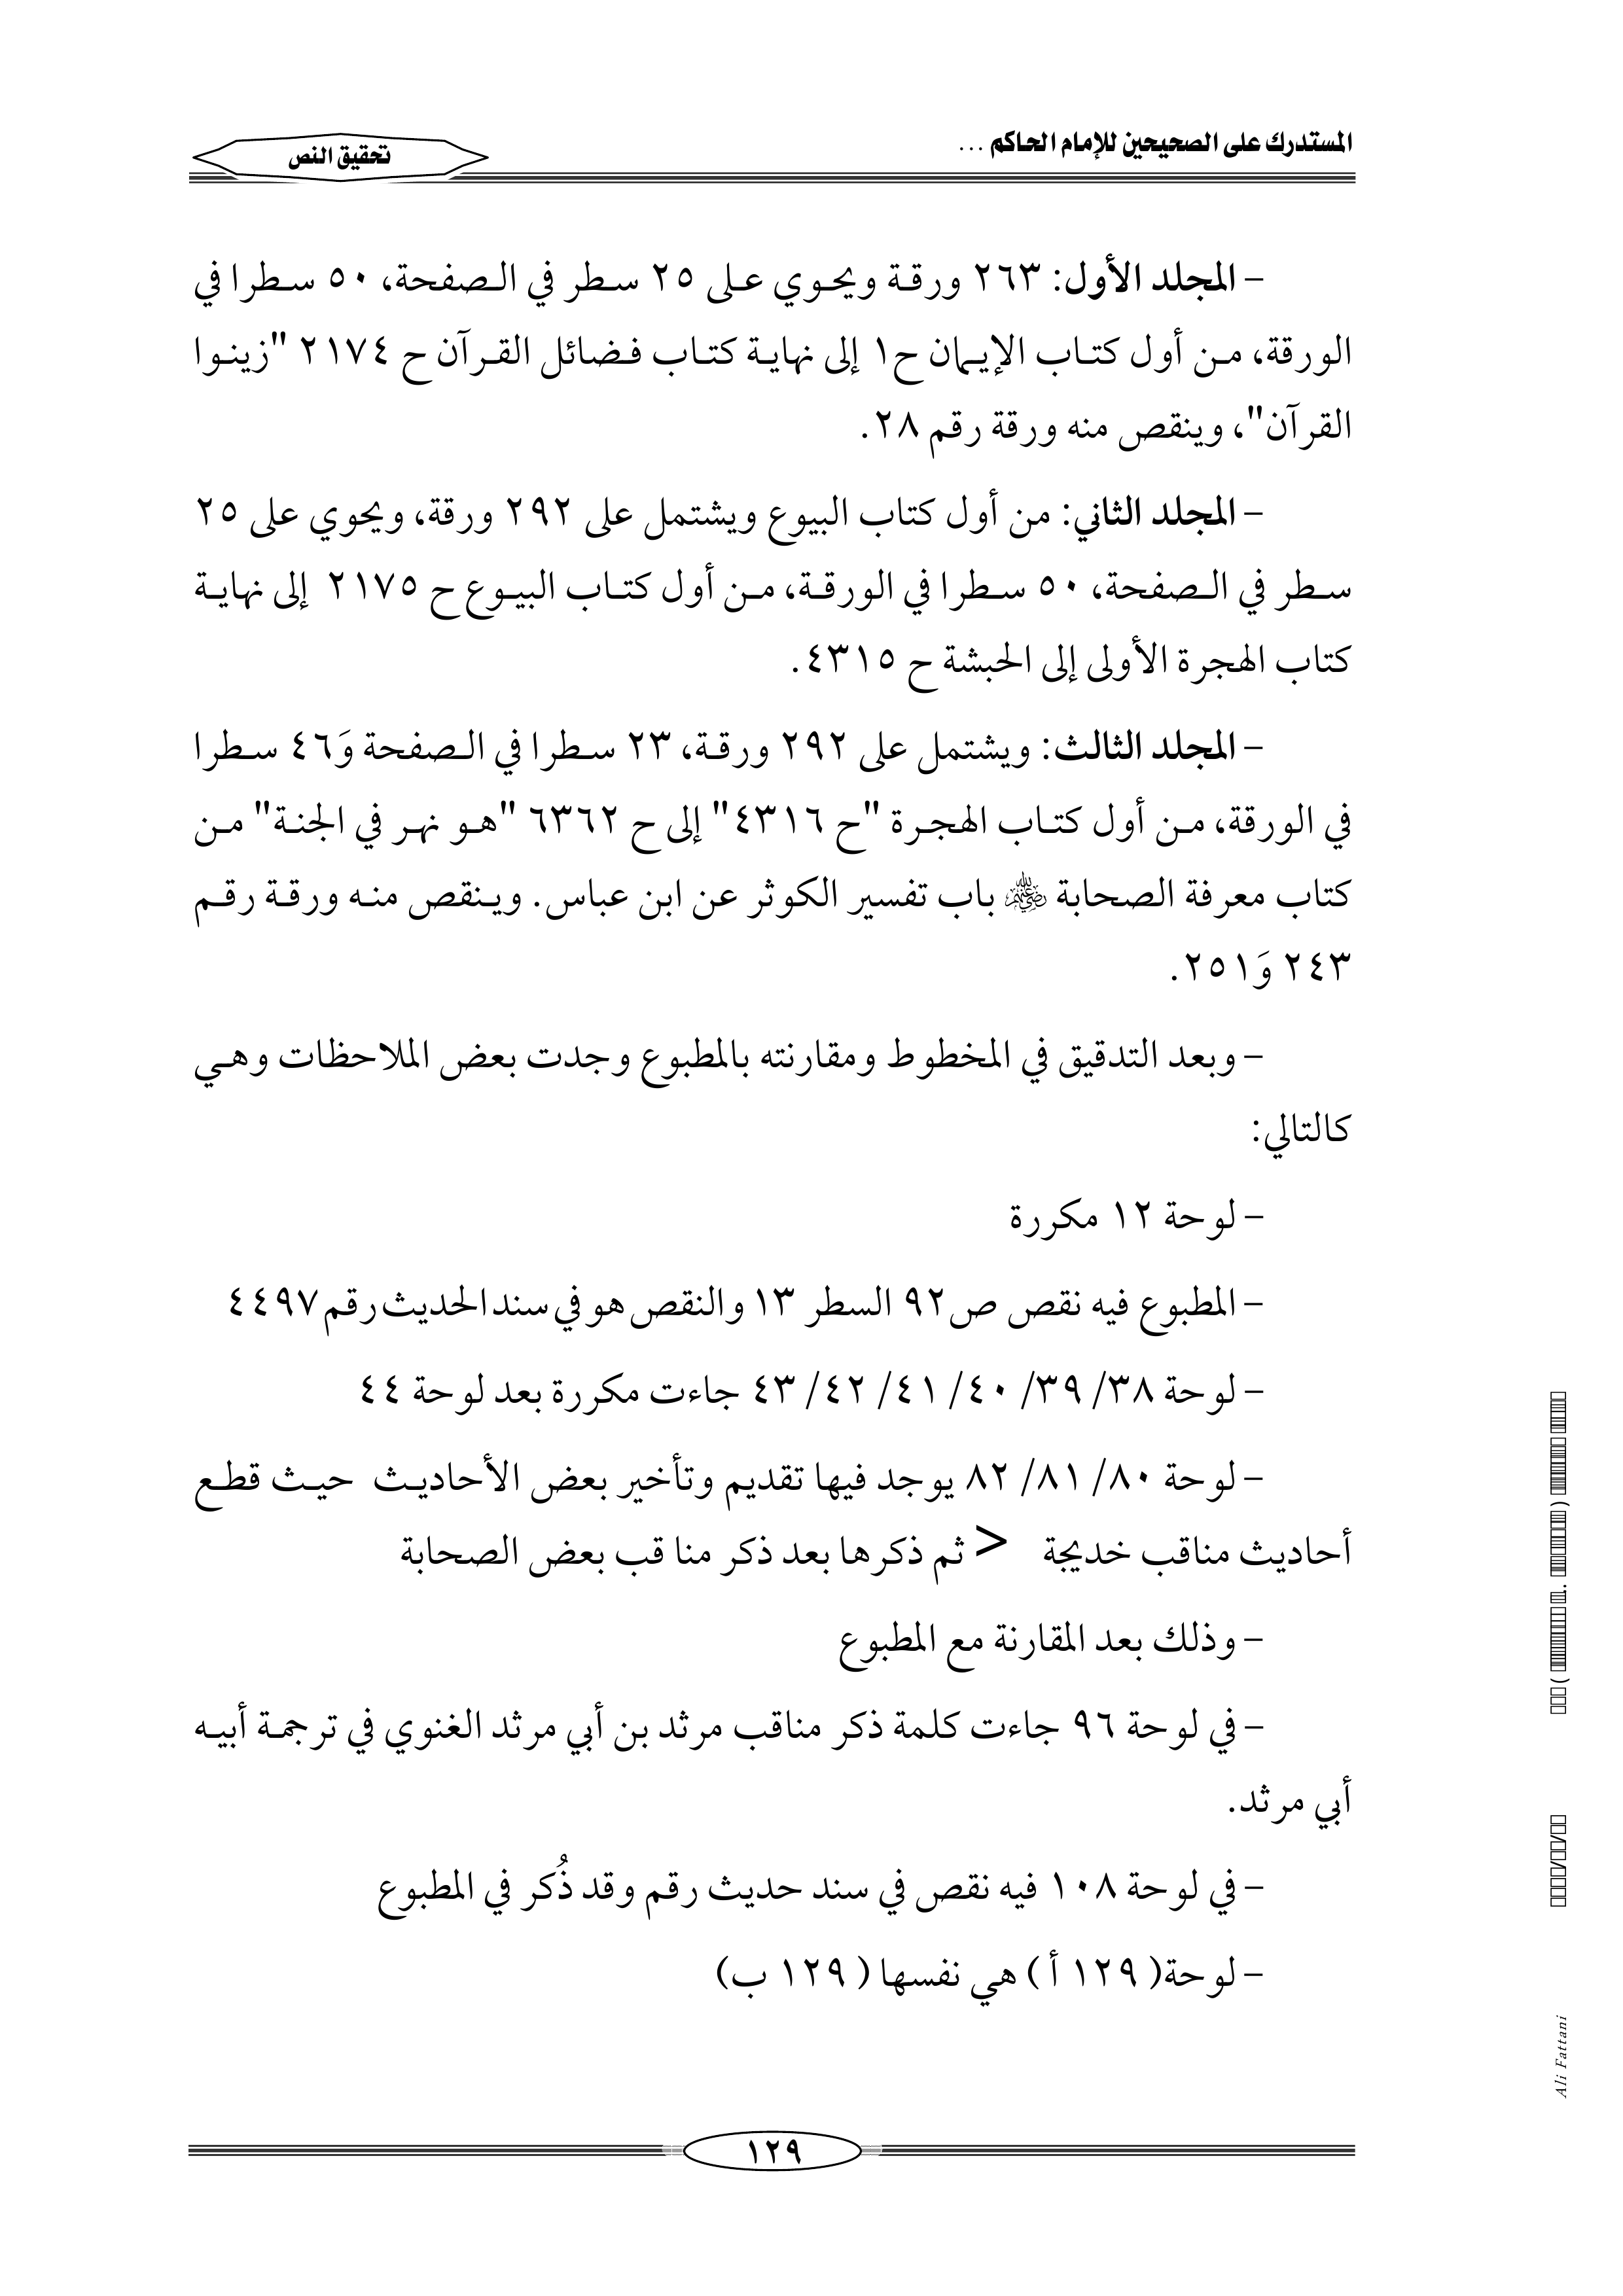 المستدرك على الصحيحين للإمام الحاكم ...
تحقيق النص
- المجلد الأول: ٢٦٣ ورقة ويحوي على ٢٥ سطر في الصفحة، ٥٠ سطرا في
الورقة، من أول كتاب الإيمان ح١ إلى نهاية كتاب فضائل القرآن ح ٢١٧٤ "زينوا
القرآن"، وينقص منه ورقة رقم ٢٨.
- المجلد الثاني: من أول كتاب البيوع ويشتمل على ٢٩٢ ورقة، ويحوي على ٢٥
سطر في الصفحة، ٥٠ سطرا في الورقة، من أول كتاب البيوع ح ٢١٧٥ إلى نهاية
كتاب الهجرة الأولى إلى الحبشة ح ٤٣١٥.
- المجلد الثالث: ويشتمل على ٢٩٢ ورقة، ٢٣ سطرا في الصفحة وَ٤٦ سطرا
في الورقة، من أول كتاب الهجرة "ح ٤٣١٦" إلى ح ٦٣٦٢ "هو نهر في الجنة" من
كتاب معرفة الصحابة ﷺ باب تفسير الكوثر عن ابن عباس. وينقص منه ورقة رقم
٢٤٣ وَ٢٥١.
- وبعد التدقيق في المخطوط ومقارنته بالمطبوع وجدت بعض الملاحظات وهي
كالتالي:
- لوحة ١٢ مكررة
- المطبوع فيه نقص ص٩٢ السطر ١٣ والنقص هو في سند الحديث رقم ٤٤٩٧
- لوحة ٣٨/ ٣٩/ ٤٠/ ٤١/ ٤٢/ ٤٣ جاءت مكررة بعد لوحة ٤٤
- لوحة ٨٠/ ٨١/ ٨٢ يوجد فيها تقديم وتأخير بعض الأحاديث حيث قطع
أحاديث مناقب خديجة > ثم ذكرها بعد ذكر منا قب بعض الصحابة
- وذلك بعد المقارنة مع المطبوع
- في لوحة ٩٦ جاءت كلمة ذكر مناقب مرثد بن أبي مرثد الغنوي في ترجمة أبيه
أبي مرثد.
- في لوحة ١٠٨ فيه نقص في سند حديث رقم وقد ذُكر في المطبوع
- لوحة( ١٢٩ أ ) هي نفسها ( ١٢٩ ب)
١٢٩
Ali Fattani